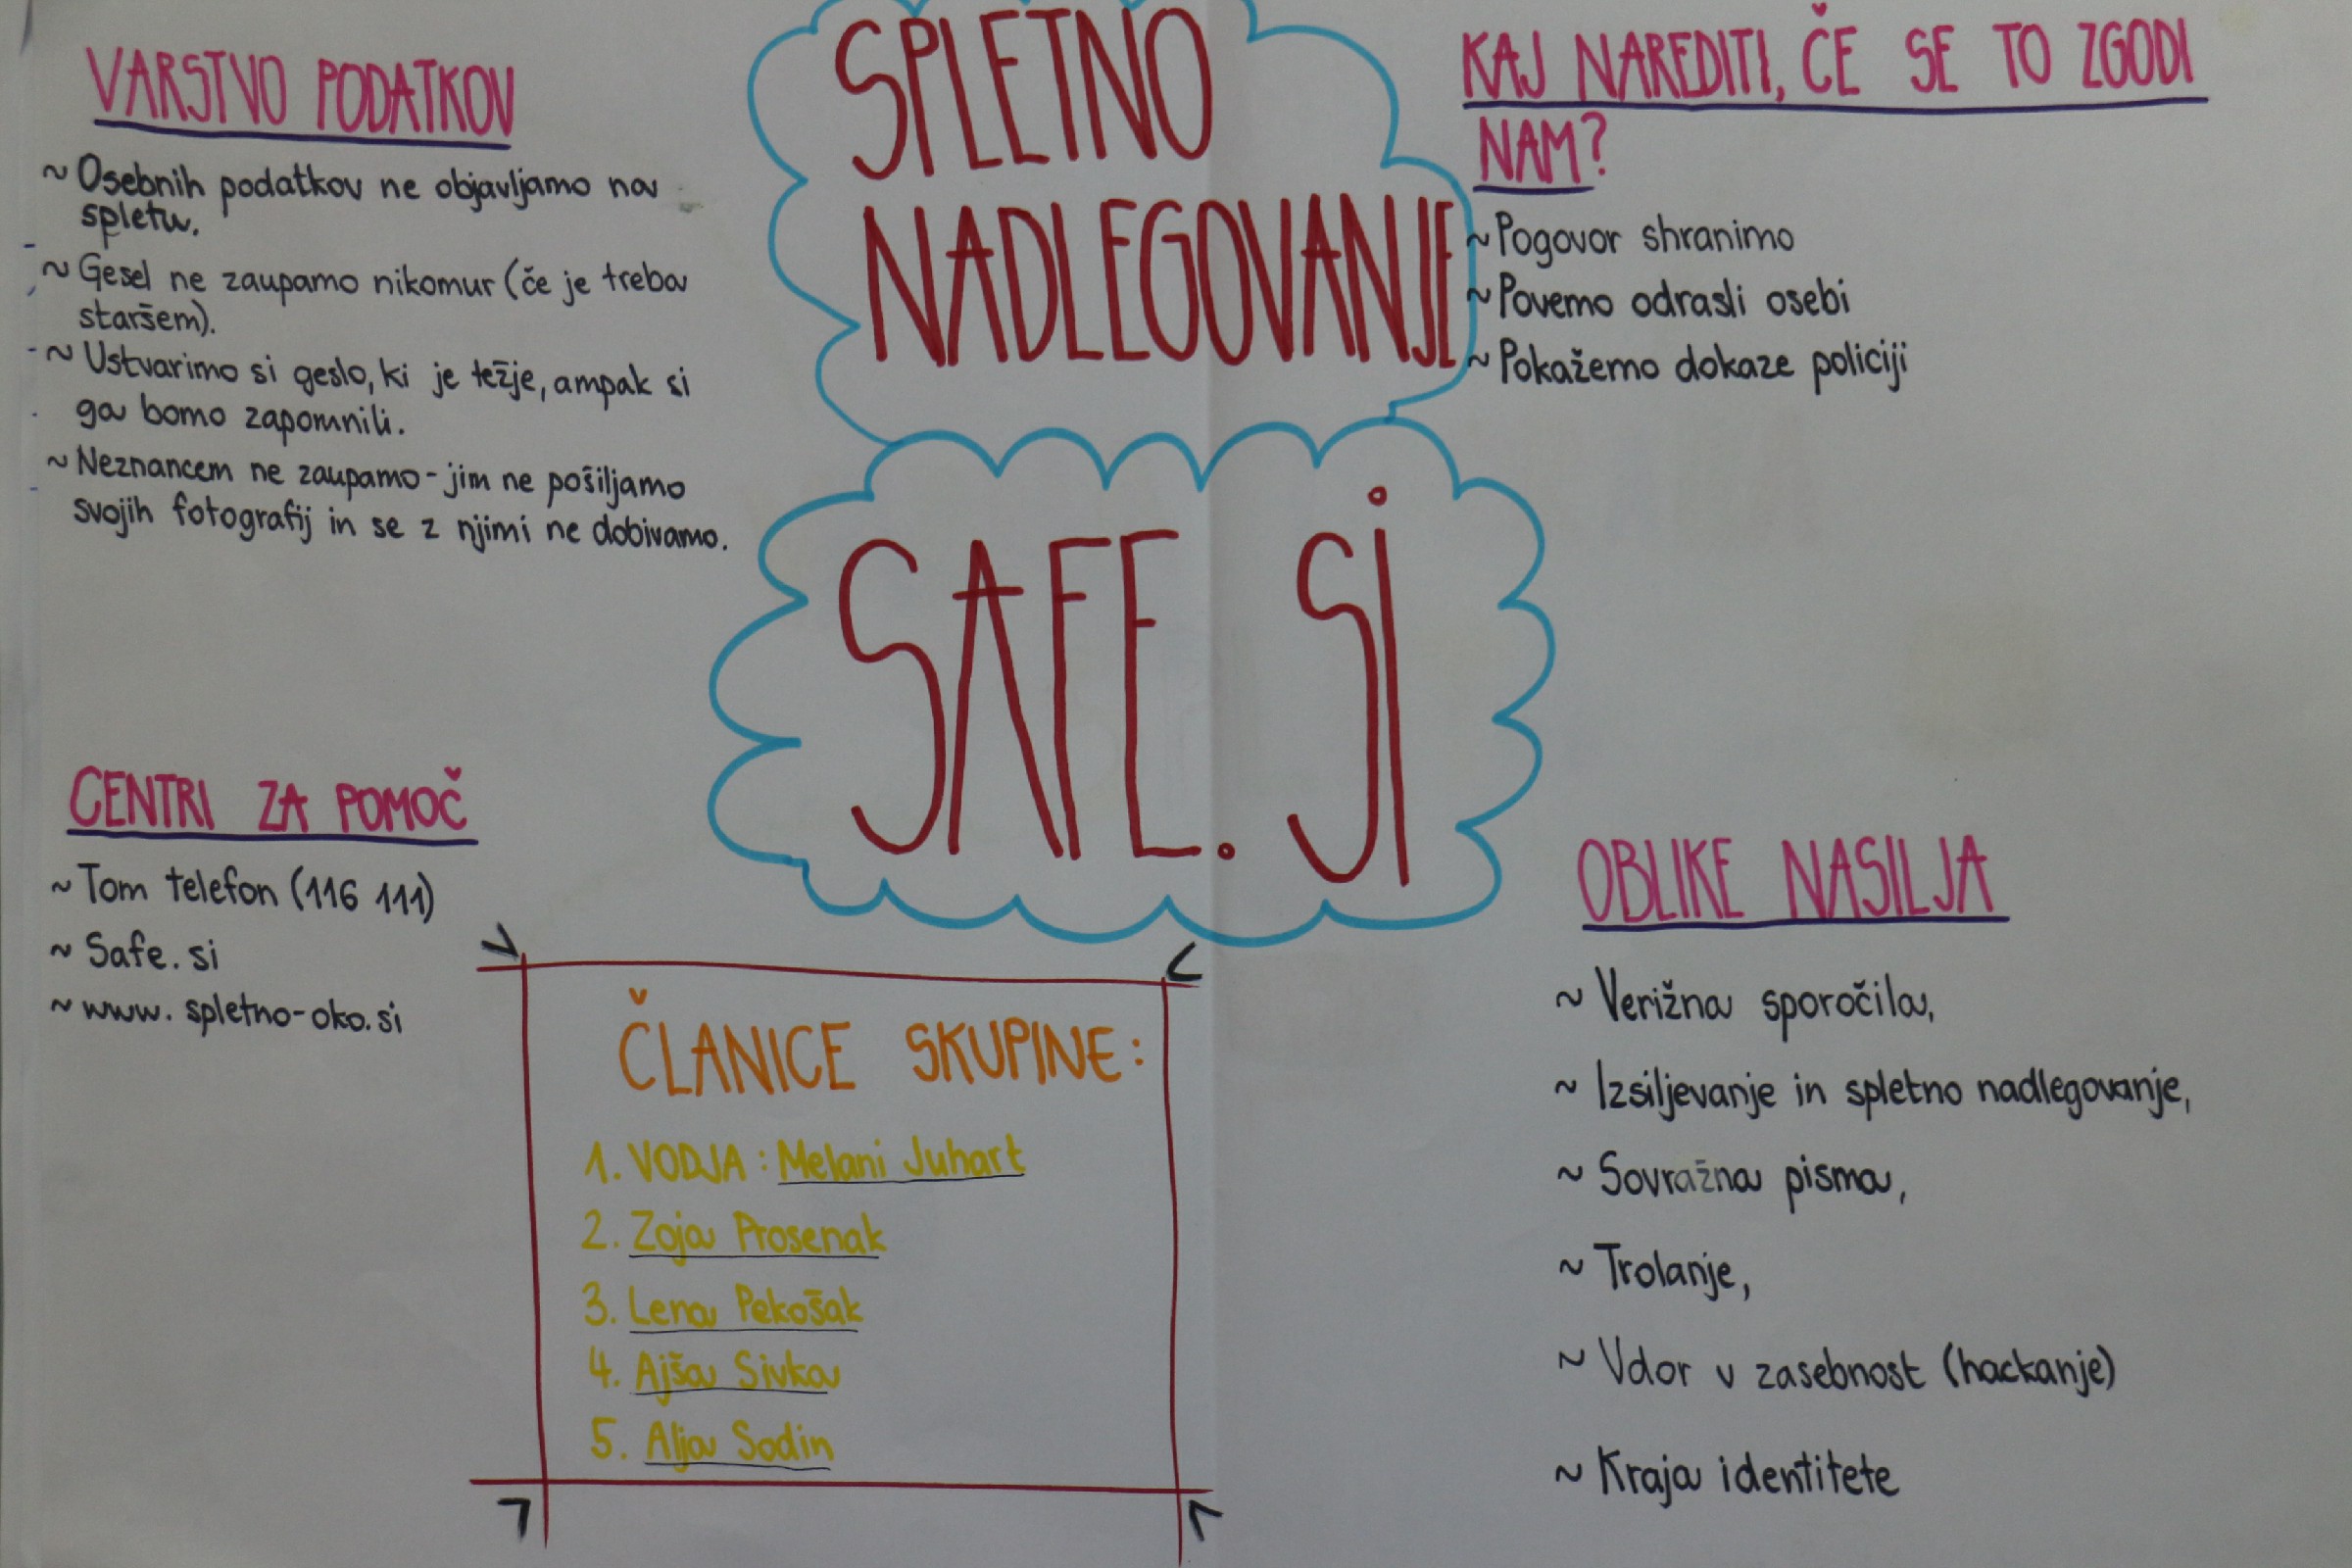 VARSTVO PODATKOV
~ Osebnih podatkov ne objavljamo na
spletu.
~ Gesel ne zaupamo nikomur (če je treba
staršem).
~ Ustvarimo si geslo, ki je težje, ampak si
ga bomo zapomnili.
~ Neznancem ne zaupamo - jim ne pošiljamo
svojih fotografij in se z njimi ne dobivamo.
SPLETNO
NADLEGOVANJE
SAFE.Si
KAJ NAREDITI, ČE SE TO ZGODI
NAM?
~ Pogovor shranimo
~ Povemo odrasli osebi
~ Pokažemo dokaze policiji
CENTRI ZA POMOČ
~ Tom telefon (116 111)
~ Safe.si
~ www.spletno-oko.si
ČLANICE SKUPINE:
1. VODJA: Melani Juhart
2. Zoja Prosenak
3. Lena Pekošak
4. Ajša Sivka
5. Alja Sodin
OBLIKE NASILJA
~ Verižna sporočila,
~ Izsiljevanje in spletno nadlegovanje,
~ Sovražna pisma,
~ Trolanje,
~ Vdor v zasebnost (hackanje)
~ Kraja identitete